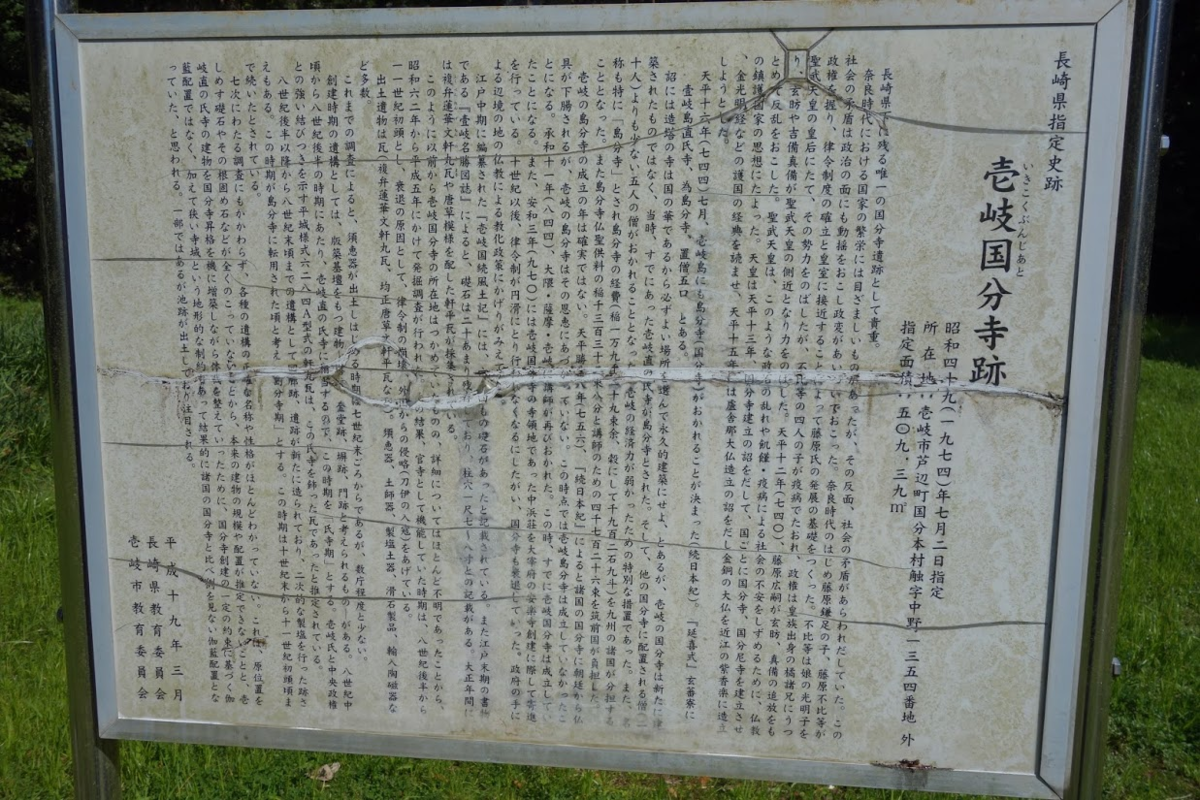 長崎県指定史跡
いきこくぶんじあと
壱岐国分寺跡
昭和四十九(一九七四)年七月二日指定
所在地:壱岐市芦辺町国分本村触字中野一三五四番地 外
指定面積:五〇九.三九㎡
長崎県下に残る唯一の国分寺遺跡として貴重。
奈良時代における国家の繁栄には目ざましいものがあったが、その反面、社会の矛盾があらわれだしていた。この
社会の矛盾は政治の面にも動揺をおこし政変があいついでおこった。奈良時代のはじめ藤原鎌足の子、藤原不比等が
政権を握り、律令制度の確立と皇室に接近することによって藤原氏の発展の基礎をつくった。不比等は娘の光明子を
聖武天皇の皇后にたて、その勢力をのばしたが、不比等の四人の子が疫病でたおれ、政権は皇族出身の橘諸兄にうつ
り、玄昉や吉備真備が聖武天皇の側近となり力をのばした。天平十二年(七四〇)、藤原広嗣が玄昉、真備の追放をも
とめて反乱をおこした。聖武天皇は、このような政治の乱れや飢饉・疫病による社会の不安をしずめるために、仏教
の鎮護国家の思想にたよった。天皇は天平十三年、国分寺建立の詔をだして、国ごとに国分寺、国分尼寺を建立させ
、金光明経などの護国の経典を読ませ、天平十五年には盧舎那大仏造立の詔をだし金銅の大仏を近江の紫香楽に造立
しようとした。
天平十六年(七四四)七月、壱岐島にも島分寺(国分寺)がおかれることが決まった(続日本紀)。『延喜式』玄蕃寮に
、壱岐島直氏寺、為島分寺、置僧五口、とある。
詔には造塔の寺は国の華であるから必ずよい場所を選んで永久的建築にせよ、とあるが、壱岐の国分寺は新たに建
築されたものではなく、当時、すでにあった壱岐直の氏寺が島分寺とされた。そして、他の国分寺に配置される僧(二
十人)よりも少ない五人の僧がおかれることとなった。壱岐の経済力が弱かったための特別な措置であった。また、名
称も特に「島分寺」とされ島分寺の経費稲一万九千九百二石九斗)を九州の諸国が分担する
こととなった。また島分寺仏聖供料の稲千三百三十八分と講師のための四千七百二十六束を筑前国が負担した。
壱岐の島分寺の成立の年は確実ではない。天平勝宝八年(七五六)、『続日本紀』によると諸国の国分寺に朝廷から仏
具が下賜されるが、壱岐の島分寺はその恩恵にあづかっていない。この時点では壱岐島分寺は成立していなかったこ
とになる。承和十一年(八四四)、大隅・薩摩・壱岐に講師が再びおかれた。この時、すでに壱岐国分寺は成立してい
たことになる。また、安和三年(九七〇)には壱岐国分寺の寺領地であった中浜荘を大宰府の安楽寺創建に際して寄進
を行っている。十世紀以後、律令制が円滑にとり行われなくなるにしたがい、国分寺も衰退していった。政府の手に
よる辺境の地の仏教による教化政策にかげりがみえて
江戸中期に編纂された『壱岐国続風土記』には、
もの礎石があったと記載されている。また江戸末期の書物
である『壱岐名勝図誌』によると、礎石は二十あまり
ており、柱穴一尺七~八寸との記載がある。大正年間に
は複弁蓮華文軒丸瓦や唐草模様を配した軒平瓦が採集されている。
このように以前から壱岐国分寺の所在地はつかめていたものの、詳細についてはほとんど不明であったことから、
昭和六二年から平成五年にかけて発掘調査が行われ、その結果、官寺として機能していた時期は、八世紀後半から
一一世紀初頭とし、衰退の原因として、律令制の崩壊、外部からの侵略(刀伊の入寇)をあげている。
出土遺物は瓦(複弁蓮華文軒丸瓦、均正唐草文軒平瓦など)、須恵器、土師器、製塩土器、滑石製品、輸入陶磁器な
ど多数。
これまでの調査によると、須恵器が出土しはじめる時期は七世紀末ごろからであるが、数片程度と少ない。
創建時期の遺構としては、版築基壇をもつ建物、金堂跡、塀跡、門跡と考えられるものがある。八世紀中
頃から八世紀後半の時期にあたり、壱岐直の氏寺に相当するので、この時期を「氏寺期」とする。壱岐氏と中央政権
との強い結びつきを示す平城様式六二八四A型式の軒丸瓦は、この氏寺を飾った瓦であったと推定されている。
八世紀後半以降から八世紀末頃までの遺構として回廊跡、遺跡が新たに造られており、二次的な製塩を行った跡さ
えもある。この時期が島分寺に転用された頃と考え「島分寺期」とする。この時期は十世紀末から十一世紀初頭ま
で続いたとされている。
七次にわたる調査にもかかわらず、各種の遺構の正確な名称や性格がほとんどわかっていない。これは、原位置を
しめす礎石やその根固め石などが全くのこっていないことから、本来の建物の規模や配置が推定できないことと、壱
岐直の氏寺の建物を国分寺昇格を機に増築しながら体裁を整えていったために、国分寺創建の一定の約束に基づく伽
藍配置ではなく、加えて狭い寺域という地形的な制約もあって結果的に諸国の国分寺と比べ例を見ない伽藍配置とな
っていた、と思われる。一部ではあるが池跡が出土しており注目される。
平成十九年三月
長崎県教育委員会
壱岐市教育委員会